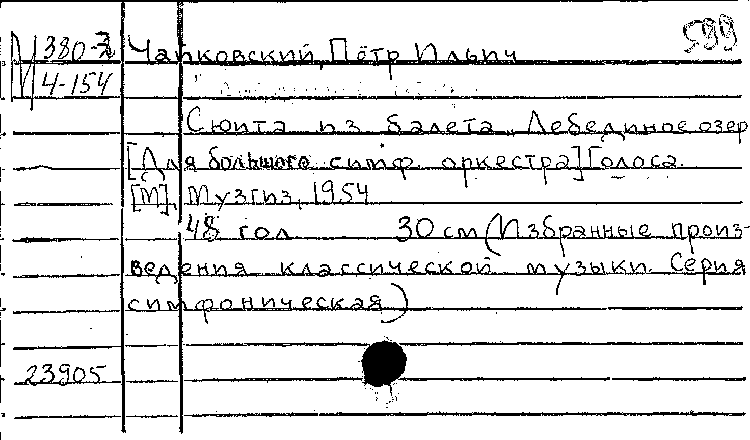 М 380-3 Чайковский, Пётр Ильич 599
4-154
Сюита из балета „Лебединое озер
[Для большого симф. оркестра] Голоса.
[М], Музгиз, 1954
48 гол 30 см (Избранные произ-
ведения классической музыки. Серия
симфоническая)
23905